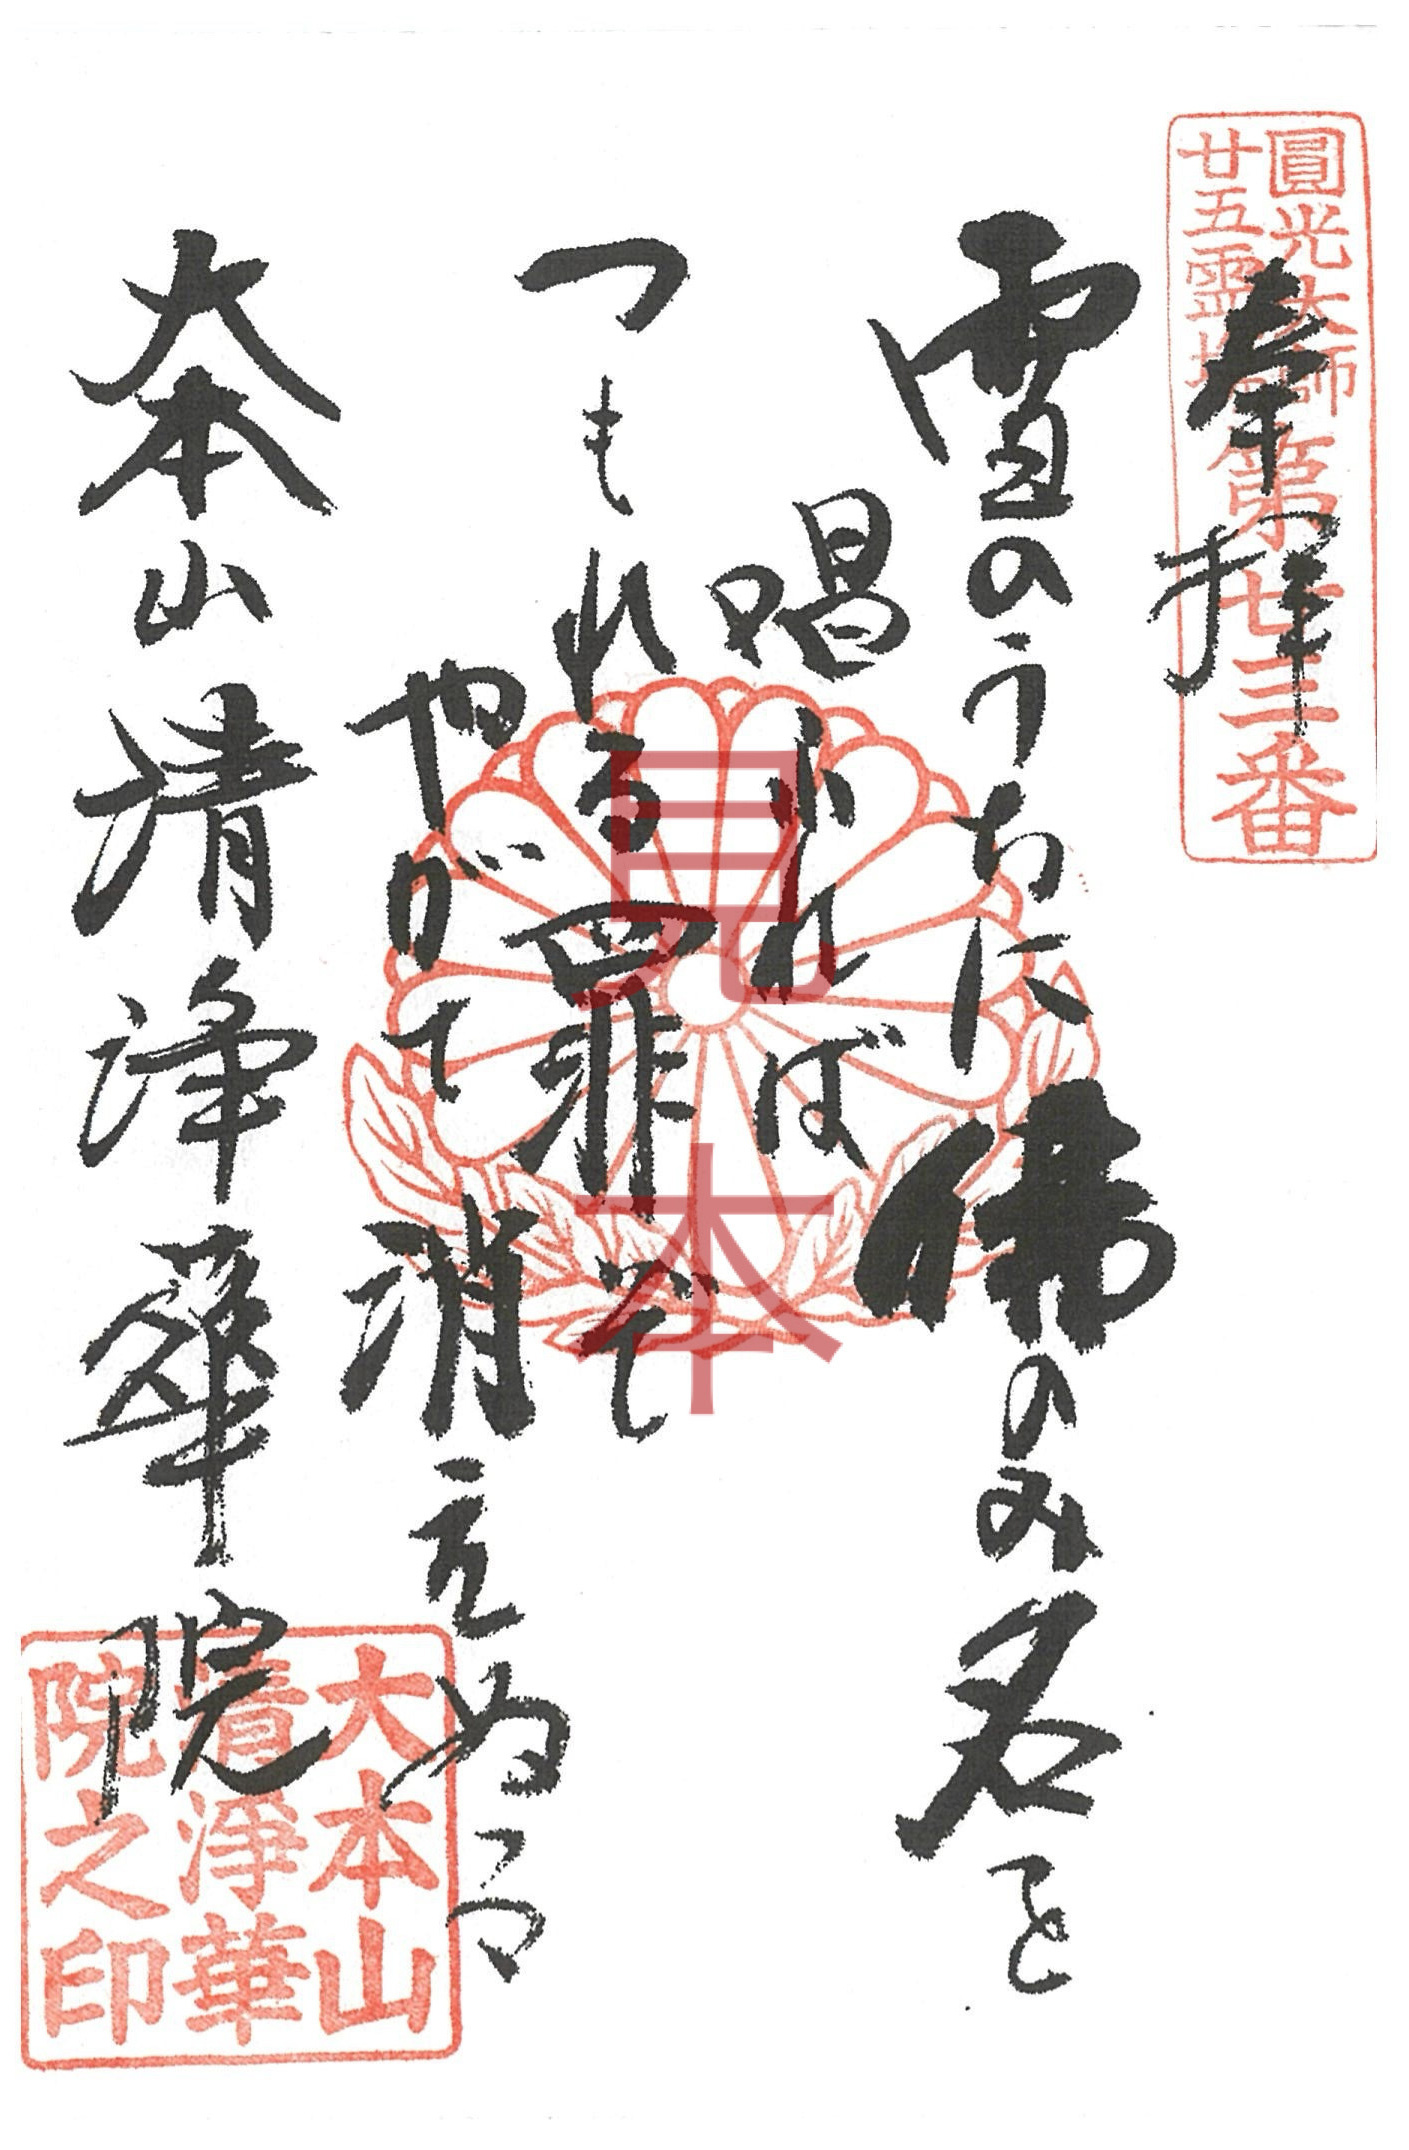 圓光大師
廿五霊場
第廿三番
奉拝
雪のうちに佛のみ名を
唱ふれば
つもれる罪ぞ
やがて消えぬる
大本山清浄華院
見本
大本山
清浄華
院之印